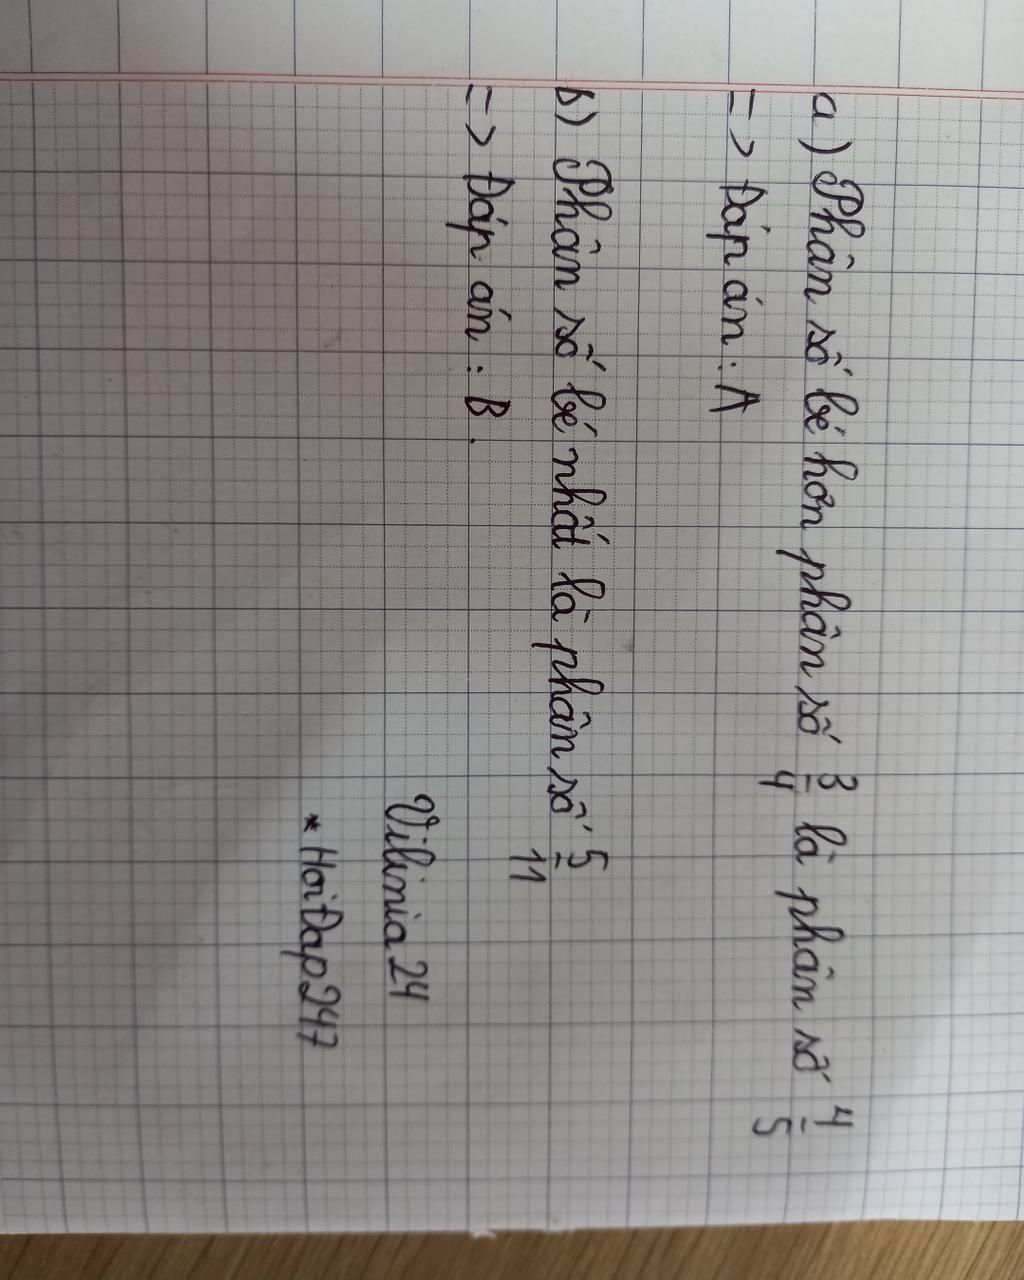 a) Phân số bé hơn phân số 3/4 là phân số 4/5
=> Đáp án: A
b) Phân số bé nhất là phân số 5/11
=> Đáp án: B.
Vilinia24
*HoiĐap247